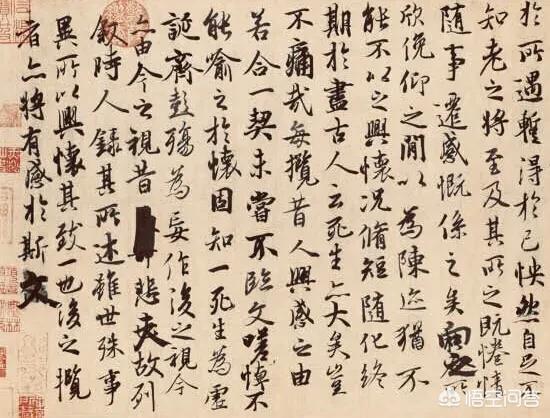 於所遇蹔得於己怏然自足不
知老之將至及其所之既惓情
隨事遷感慨係之矣向之所
欣俛仰之閒以為陳迹猶不
能不以之興懷況脩短隨化終
期於盡古人云死生亦大矣豈
不痛哉每攬昔人興感之由
若合一契未嘗不臨文嗟悼不
能喻之於懷固知一死生為虛
誕齊彭殤為妄作後之視今
亦由今之視昔悲夫故列
敘時人錄其所述雖世殊事
異所以興懷其致一也後之攬
者亦將有感於斯文
悟空问答